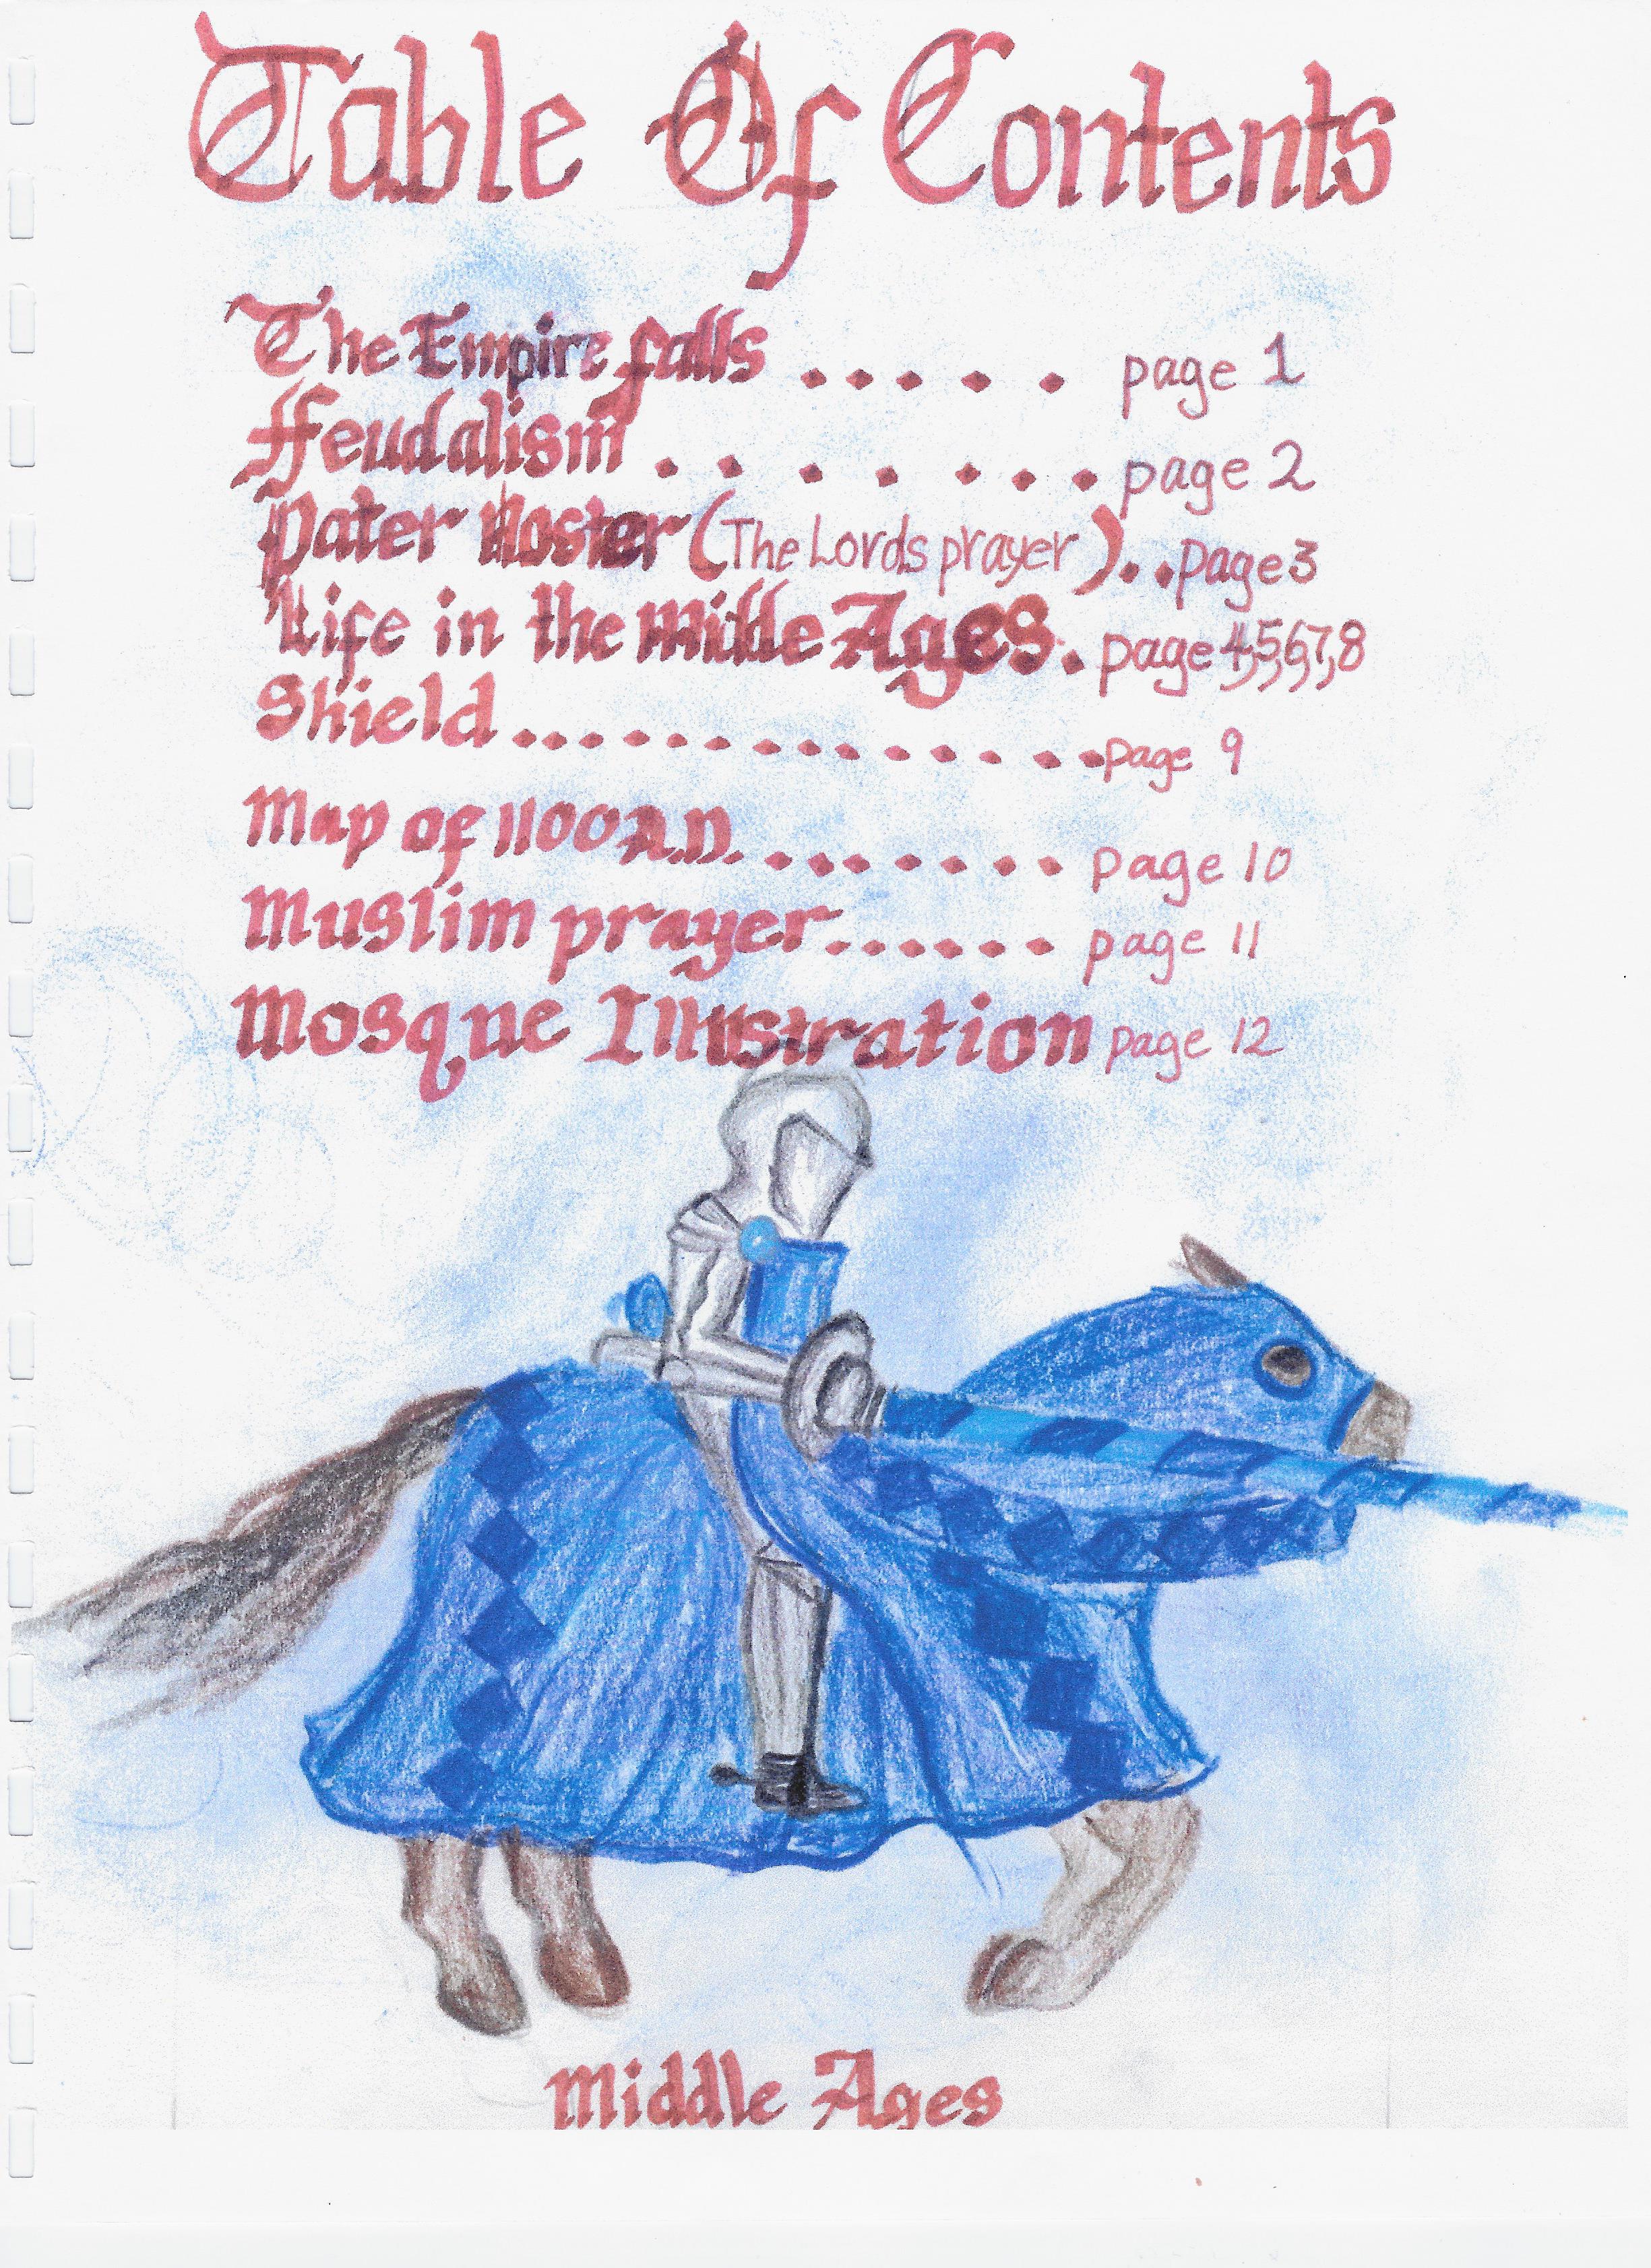 Table Of Contents
The Empire falls ..... page 1
Feudalism ....... page 2
Pater Noster (The Lords prayer) .. page 3
Life in the Middle Ages. . page 4,5,6,7,8
Shield ............... page 9
Map of 1100 A.D. ........ page 10
Muslim prayer ...... page 11
Mosque Illustration page 12
Middle Ages